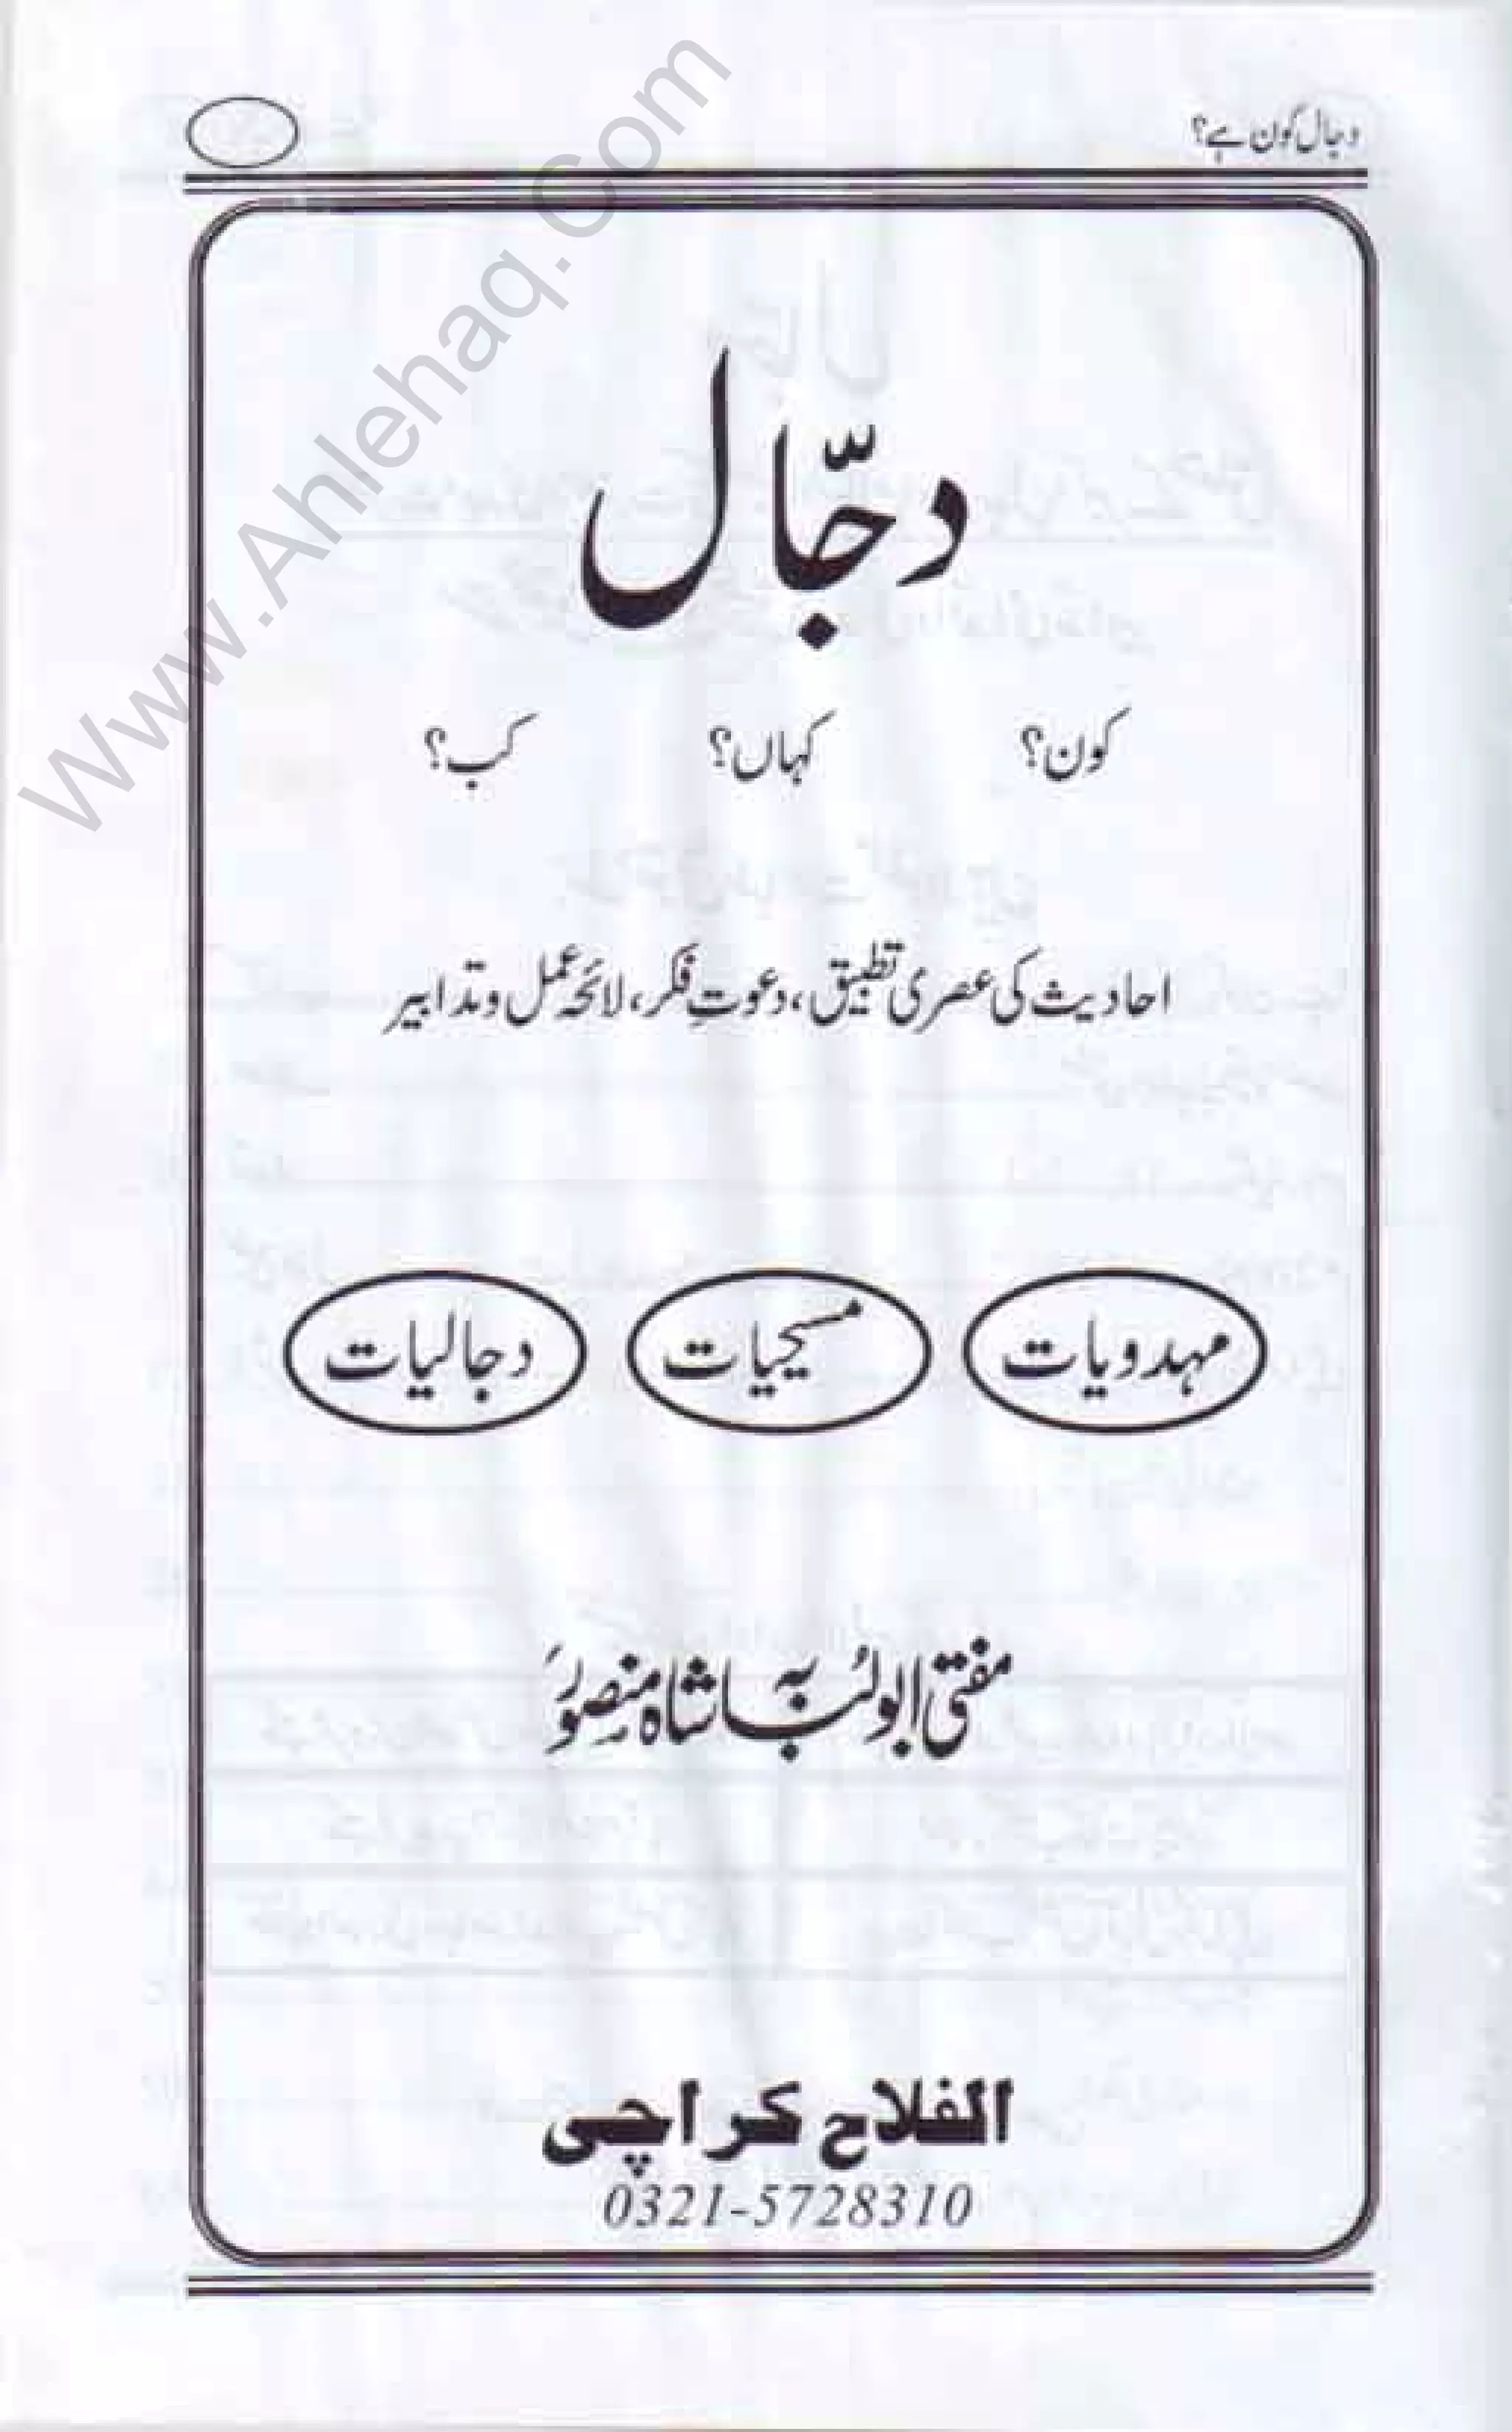 دجال کون ہے؟
دجّال
کون؟ کہاں؟ کب؟
احادیث کی عصری تطبیق، دعوتِ فکر، لائحہ عمل و تدابیر
مہدویات مسیحیات دجالیات
مفتی ابولبابہ شاہ منصور
الفلاح کراچی
0321-5728310
Www.Ahlehaq.com